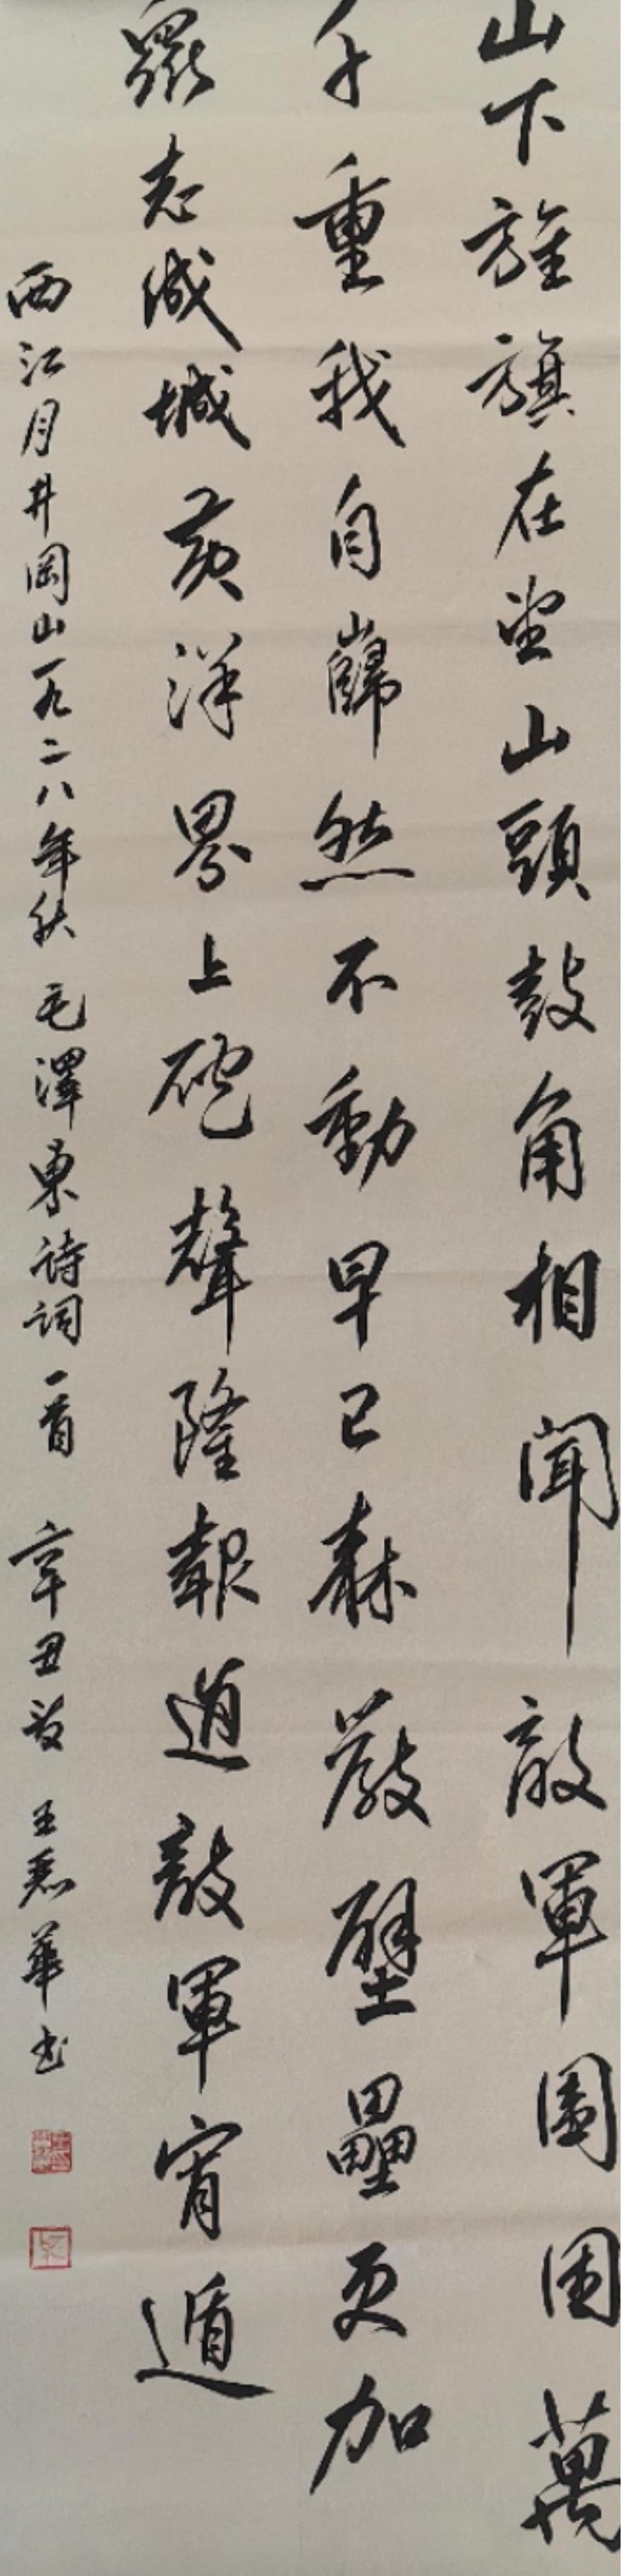 山下旌旗在望山頭鼓角相聞敵軍圍困萬
千重我自巋然不動早已森嚴壁壘更加
眾志成城黃洋界上砲聲隆報道敵軍宵遁
西江月井岡山一九二八年秋 毛澤東詩詞一首 辛丑 王 華书